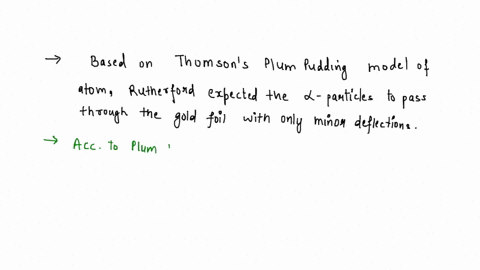 → Based on Thomson's Plum Pudding model of
atom, Rutherford expected the α-particles to pass
through the gold foil with only minor deflections.
→ Acc. to Plum '